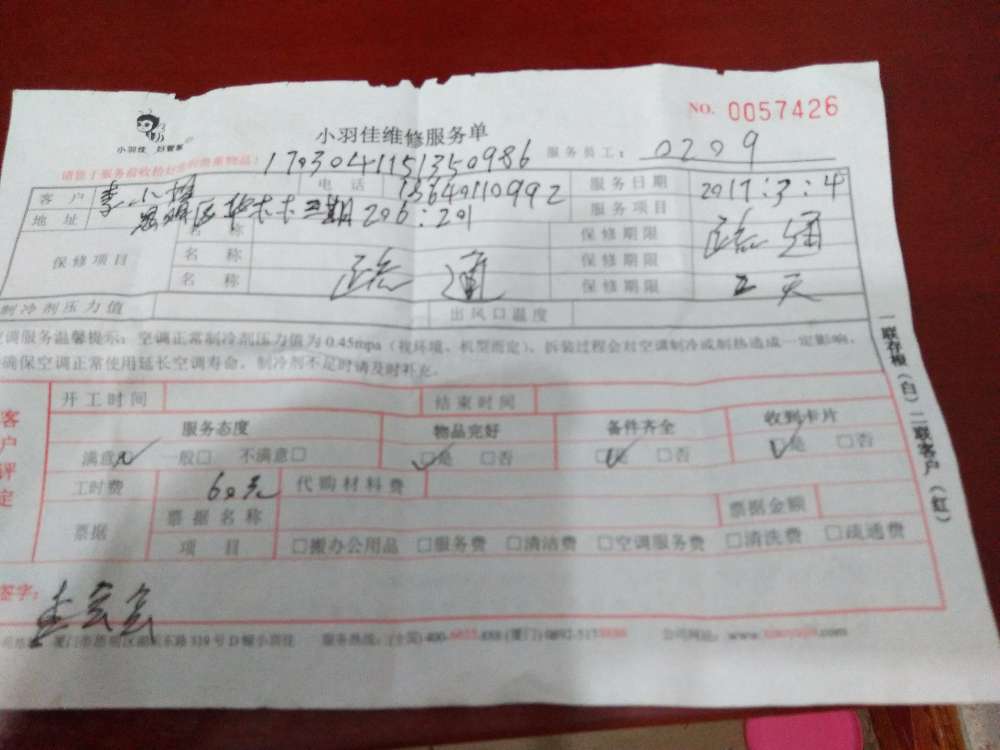 NO. 0057426
小羽佳 妇管家
小羽佳维修服务单
服务员工: 0209
1703041151350986
客户 李小姐 电话 13640110992 服务日期 2017:3:4
地址 思明区 三期206:201 服务项目 疏通
保修项目 名称 疏通 保修期限
名称 保修期限
名称 保修期限 二天
制冷剂压力值 出风口温度
空调服务温馨提示: 空调正常制冷剂压力值为0.45mpa(视环境、机型而定)、拆装过程会对空调制冷或制热造成一定影响,
确保空调正常使用延长空调寿命, 制冷剂不足时请及时补充。
一联存根(白)二联客户(红)
客户评定
开工时间 结束时间
服务态度 物品完好 备件齐全 收到卡片
满意 一般□ 不满意□ □是 □否 □是 □否 □是 □否
工时费 60元 代购材料费
票据 票据名称 票据金额
项目 □搬办公用品 □服务费 □清洁费 □空调服务费 □清洗费 □疏通费
签字:
服务热线: (全国)400 (厦门)0592 公司网站: www.